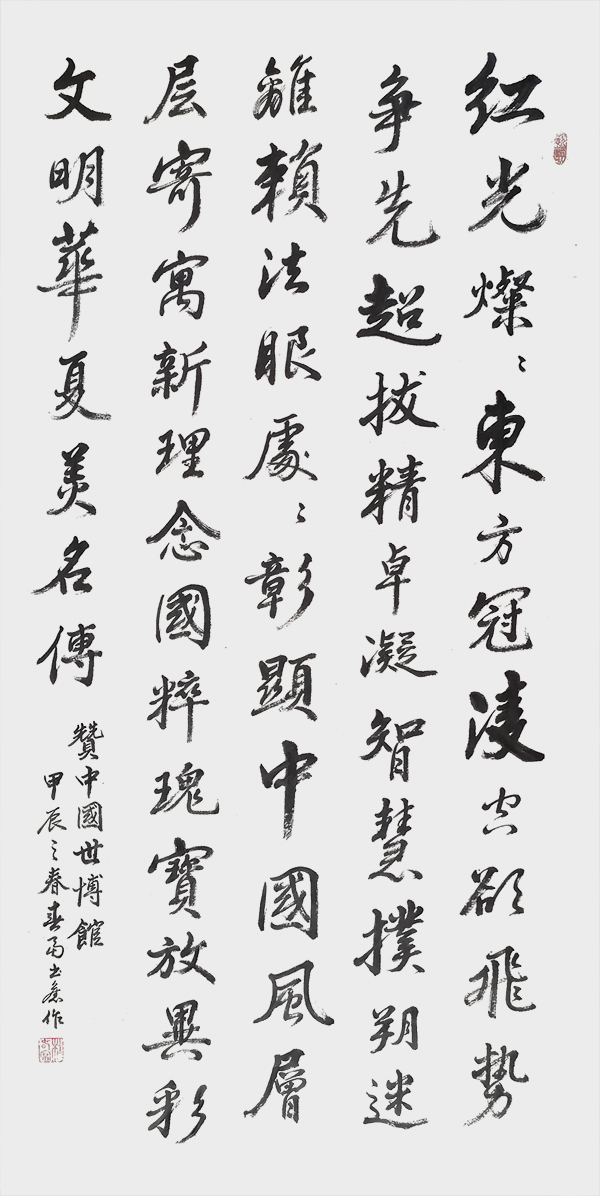 红光燦〻東方冠凌空欲飛势
争先超拔精卓凝智慧撲朔迷
離賴法眼處〻彰顯中國風層
层寄寓新理念國粹瑰寶放異彩
文明華夏美名傳
贊中國世博館
甲辰之春春雨出差作